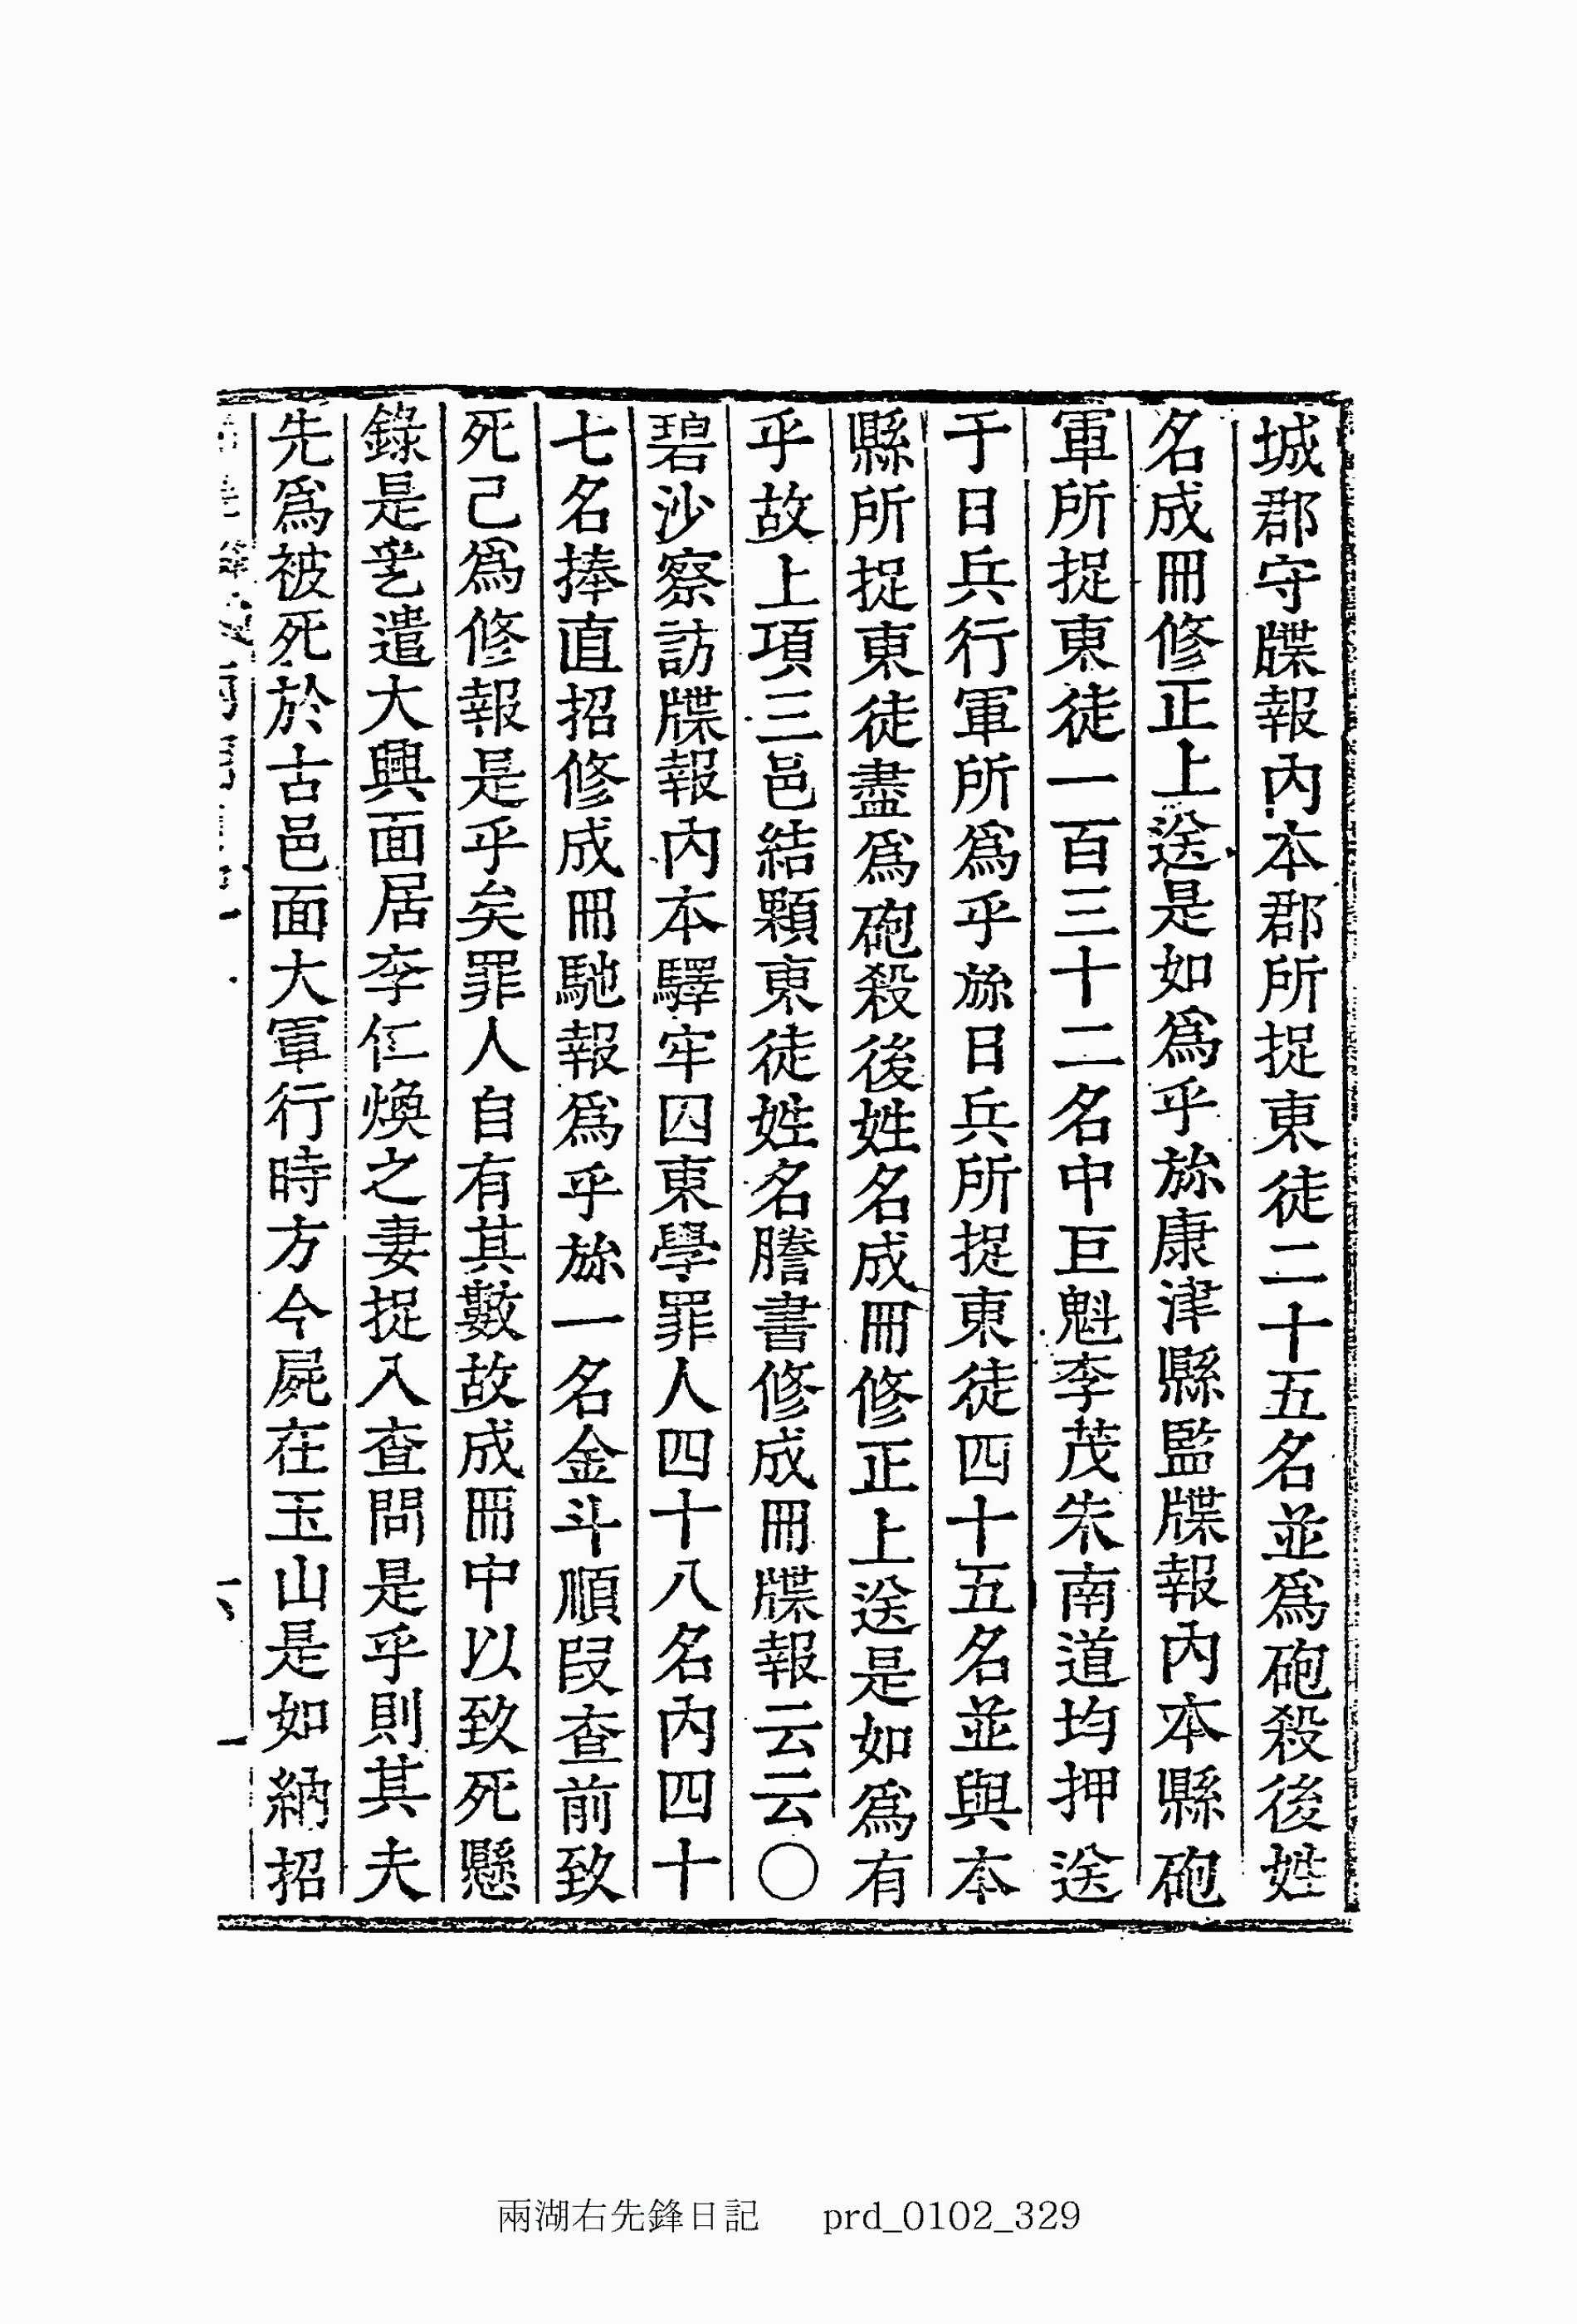 城郡守牒報內本郡所捉東徒二十五名並爲砲殺後姓
名成冊修正上送是如爲乎旀康津縣監牒報內本縣砲
軍所捉東徒一百三十二名中巨魁李茂朱南道均押送
于日兵行軍所爲乎旀日兵所捉東徒四十五名並與本
縣所捉東徒盡爲砲殺後姓名成冊修正上送是如爲有
乎故上項三邑結顆東徒姓名謄書修成冊牒報云云〇
碧沙察訪牒報內本驛牢囚東學罪人四十八名內四十
七名捧直招修成冊馳報爲乎旀一名金斗順段查前致
死己爲修報是乎矣罪人自有其數故成冊中以致死懸
錄是乯遣大興面居李仁煥之妻捉入查問是乎則其夫
先爲被死於古邑面大軍行時方今屍在玉山是如納招
兩湖右先鋒日記 prd_0102_329